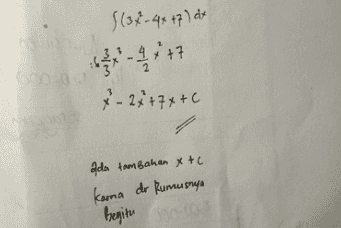 ∫(3x²-4x+7) dx
= 3/3 x³ - 4/2 x² + 7
x³ - 2x² + 7x + C
ada tambahan x + c
karna dr Rumusnya
begitu